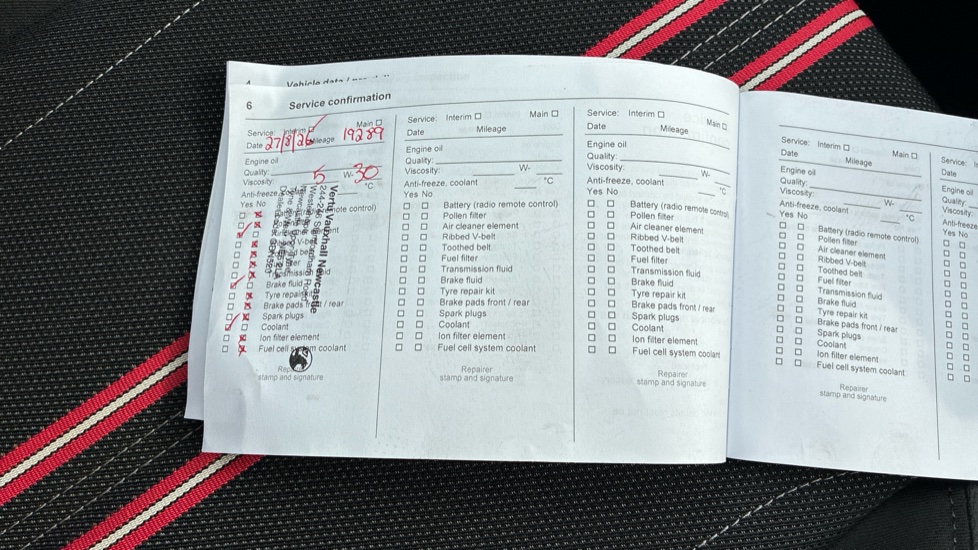 6 Service confirmation
Service: Interim Main
Date 27/8/26 Mileage 19289
Engine oil
Quality:
Viscosity: 5 W- 30
°C
Anti-freeze,
Yes No
Brake fluid
Tyre repair
Brake pads front / rear
Spark plugs
Coolant
Ion filter element
Fuel cell system coolant
Vertu Vauxhall Newcastle
stamp and signature
Service: Interim Main
Date Mileage
Engine oil
Quality:
Viscosity: W-
Anti-freeze, coolant °C
Yes No
Battery (radio remote control)
Pollen filter
Air cleaner element
Ribbed V-belt
Toothed belt
Fuel filter
Transmission fluid
Brake fluid
Tyre repair kit
Brake pads front / rear
Spark plugs
Coolant
Ion filter element
Fuel cell system coolant
Repairer
stamp and signature
Service: Interim Main
Date Mileage
Engine oil
Quality:
Viscosity: W-
Anti-freeze, coolant °C
Yes No
Battery (radio remote control)
Pollen filter
Air cleaner element
Ribbed V-belt
Toothed belt
Fuel filter
Transmission fluid
Brake fluid
Tyre repair kit
Brake pads front / rear
Spark plugs
Coolant
Ion filter element
Fuel cell system coolant
Repairer
stamp and signature
Service: Interim Main
Date Mileage
Engine oil
Quality:
Viscosity: W-
Anti-freeze, coolant °C
Yes No
Battery (radio remote control)
Pollen filter
Air cleaner element
Ribbed V-belt
Toothed belt
Fuel filter
Transmission fluid
Brake fluid
Tyre repair kit
Brake pads front / rear
Spark plugs
Coolant
Ion filter element
Fuel cell system coolant
Repairer
stamp and signature
Service:
Date
Engine oil
Quality:
Viscosity:
Anti-freeze
Yes No